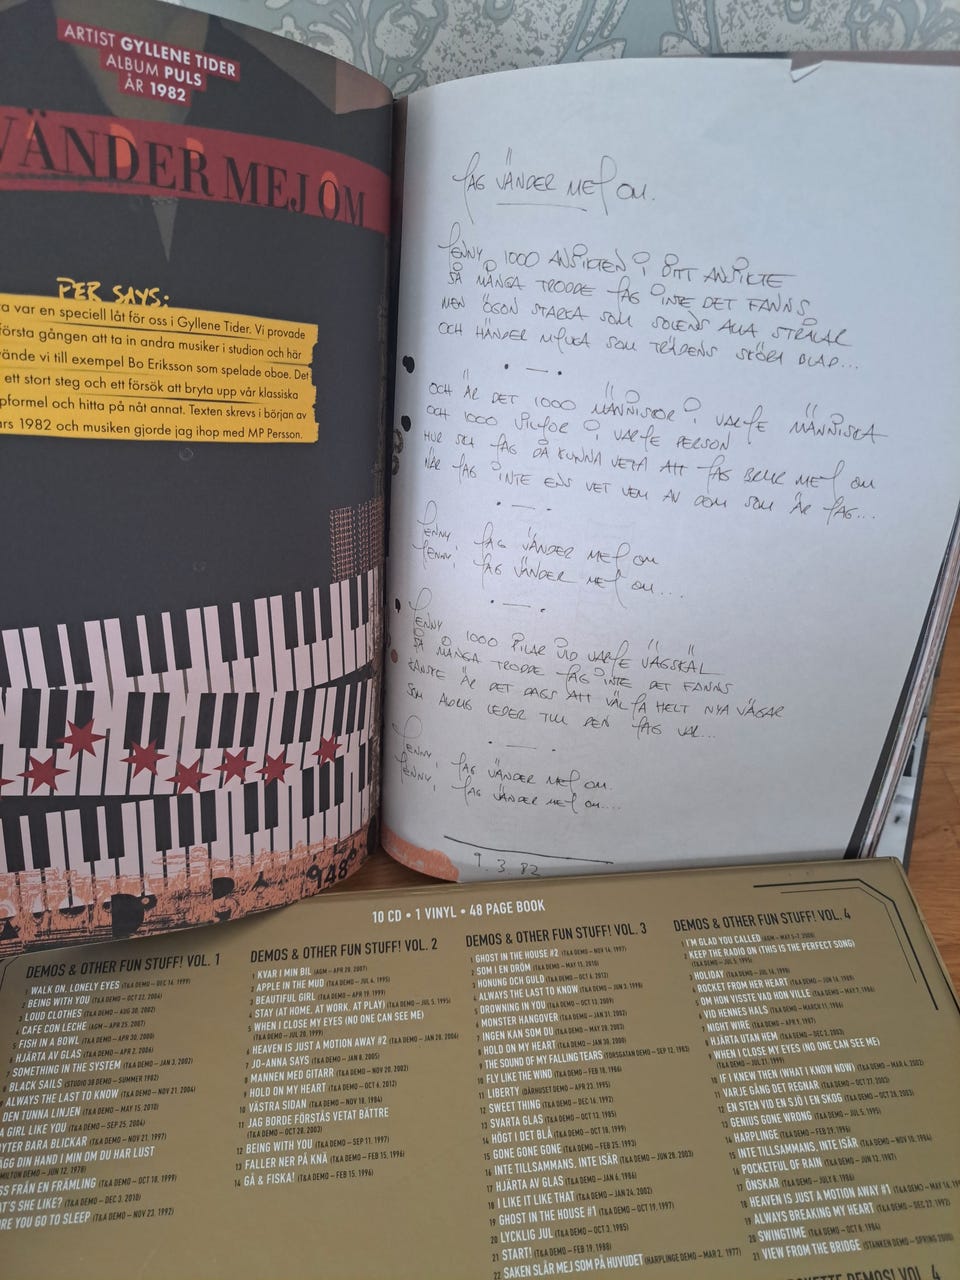 ARTIST GYLLENE TIDER
ALBUM PULS
ÅR 1982
VÄNDER MEJ OM
PER SAYS:
var en speciell låt för oss i Gyllene Tider. Vi provade
första gången att ta in andra musiker i studion och här
vände vi till exempel Bo Eriksson som spelade oboe. Det
ett stort steg och ett försök att bryta upp vår klassiska
pformel och hitta på nåt annat. Texten skrevs i början av
ars 1982 och musiken gjorde jag ihop med MP Persson.
948
JAG VÄNDER MEJ OM.
JENNY 1000 ANSIKTEN I DITT ANSIKTE
SÅ MÅNGA TRODDE JAG INTE DET FANNS
MEN ÖGON STARKA SOM SOLENS ALLA STRÅLAR
OCH HÄNDER MJUKA SOM TRÄDENS SKÖRA BLAD...
OCH ÄR DET 1000 MÄNNISKOR I VARJE MÄNNISKA
OCH 1000 SIDOR I VARJE PERSON
HUR SKA JAG DÅ KUNNA VETA ATT JAG BRYR MEJ OM
NÄR JAG INTE ENS VET VEM AV DOM SOM ÄR JAG...
JENNY, JAG VÄNDER MEJ OM
JENNY, JAG VÄNDER MEJ OM....
JENNY 1000 PILAR VID VARJE VÄGSKÄL
SÅ MÅNGA TRODDE JAG INTE DET FANNS
KANSKE ÄR DET DAGS ATT VÄLJA HELT NYA VÄGAR
SOM ALDRIG LEDER TILL DEN JAG VAR...
JENNY, JAG VÄNDER MEJ OM.
JENNY, JAG VÄNDER MEJ OM....
9.3.82
10 CD • 1 VINYL • 48 PAGE BOOK
DEMOS & OTHER FUN STUFF! VOL. 1
1 WALK ON, LONELY EYES (T&A DEMO – DEC 14, 1999)
2 BEING WITH YOU (T&A DEMO – OCT 22, 2004)
3 LOUD CLOTHES (T&A DEMO – AUG 30, 2002)
4 CAFE CON LECHE (AGM – APR 25, 2007)
5 FISH IN A BOWL (T&A DEMO – APR 30, 2000)
6 HJÄRTA AV GLAS (T&A DEMO – APR 2, 2006)
7 SOMETHING IN THE SYSTEM (T&A DEMO – JAN 3, 2002)
8 BLACK SAILS (STUDIO 38 DEMO – SUMMER 1982)
9 ALWAYS THE LAST TO KNOW (T&A DEMO – NOV 21, 2004)
DEN TUNNA LINJEN (T&A DEMO – MAY 15, 2010)
A GIRL LIKE YOU (T&A DEMO – SEP 25, 2004)
YTER BARA BLICKAR (T&A DEMO – NOV 21, 1997)
ÄGG DIN HAND I MIN OM DU HAR LUST
MILTON DEMO – JUN 12, 1978)
SS FRÅN EN FRÄMLING (T&A DEMO – OCT 18, 1999)
AT'S SHE LIKE? (T&A DEMO – DEC 3, 2010)
ORE YOU GO TO SLEEP (T&A DEMO – NOV 23, 1992)
DEMOS & OTHER FUN STUFF! VOL. 2
1 KVAR I MIN BIL (AGM – APR 20, 2007)
2 APPLE IN THE MUD (T&A DEMO – JUL 6, 1995)
3 BEAUTIFUL GIRL (T&A DEMO – APR 19, 1999)
4 STAY (AT HOME, AT WORK, AT PLAY) (T&A DEMO – JUL 5, 1995)
5 WHEN I CLOSE MY EYES (NO ONE CAN SEE ME)
(T&A DEMO – JUL 20, 1999)
6 HEAVEN IS JUST A MOTION AWAY #2 (T&A DEMO – JAN 28, 2004)
7 JO-ANNA SAYS (T&A DEMO – JAN 8, 2005)
8 MANNEN MED GITARR (T&A DEMO – NOV 20, 2002)
9 HOLD ON MY HEART (T&A DEMO – OCT 6, 2012)
10 VÄSTRA SIDAN (T&A DEMO – NOV 18, 1984)
11 JAG BORDE FÖRSTÅS VETAT BÄTTRE
(T&A DEMO – OCT 28, 2003)
12 BEING WITH YOU (T&A DEMO – SEP 11, 1997)
13 FALLER NER PÅ KNÄ (T&A DEMO – FEB 15, 1996)
14 GÅ & FISKA! (T&A DEMO – FEB 15, 1996)
DEMOS & OTHER FUN STUFF! VOL. 3
1 GHOST IN THE HOUSE #2 (T&A DEMO – NOV 14, 1997)
2 SOM I EN DRÖM (T&A DEMO – MAY 15, 2010)
3 HONUNG OCH GULD (T&A DEMO – OCT 6, 2012)
4 ALWAYS THE LAST TO KNOW (T&A DEMO – JUN 3, 1998)
5 DROWNING IN YOU (T&A DEMO – OCT 13, 2009)
6 MONSTER HANGOVER (T&A DEMO – JAN 31, 2002)
7 INGEN KAN SOM DU (T&A DEMO – MAY 28, 2003)
8 HOLD ON MY HEART (T&A DEMO – JAN 30, 2000)
9 THE SOUND OF MY FALLING TEARS (TORSGATAN DEMO – SEP 12, 1983)
10 FLY LIKE THE WIND (T&A DEMO – FEB 18, 1986)
11 LIBERTY (DÅRHUSET DEMO – APR 23, 1995)
12 SWEET THING (T&A DEMO – DEC 16, 1992)
13 SVARTA GLAS (T&A DEMO – OCT 13, 1985)
14 HÖGT I DET BLÅ (T&A DEMO – OCT 18, 1999)
15 GONE GONE GONE (T&A DEMO – FEB 25, 1993)
16 INTE TILLSAMMANS, INTE ISÄR (T&A DEMO – JUN 28, 2003)
17 HJÄRTA AV GLAS (T&A DEMO – JAN 6, 1986)
18 I LIKE IT LIKE THAT (T&A DEMO – JAN 24, 2002)
19 GHOST IN THE HOUSE #1 (T&A DEMO – OCT 19, 1997)
20 LYCKLIG JUL (T&A DEMO – OCT 3, 1985)
21 START! (T&A DEMO – FEB 19, 1988)
22 SAKEN SLÅR MEJ SOM PÅ HUVUDET (HARPLINGE DEMO – MAR 2, 1977)
DEMOS & OTHER FUN STUFF! VOL. 4
1 I'M GLAD YOU CALLED (AGM – MAY 5-7, 2008)
2 KEEP THE RADIO ON (THIS IS THE PERFECT SONG)
(T&A DEMO – JUL 5, 1995)
3 HOLIDAY (T&A DEMO – JUL 14, 1998)
4 ROCKET FROM HER HEART (T&A DEMO – JUN 14, 1989)
5 OM HON VISSTE VAD HON VILLE (T&A DEMO – MAY 7, 1986)
6 VID HENNES HALS (T&A DEMO – MARCH 11, 1986)
7 NIGHT WIRE (T&A DEMO – APR 9, 1987)
8 HJÄRTA UTAN HEM (T&A DEMO – DEC 3, 2003)
9 WHEN I CLOSE MY EYES (NO ONE CAN SEE ME)
(T&A DEMO – JUL 21, 1999)
10 IF I KNEW THEN (WHAT I KNOW NOW) (T&A DEMO – MAR 4, 2002)
11 VARJE GÅNG DET REGNAR (T&A DEMO – OCT 27, 2003)
12 EN STEN VID EN SJÖ I EN SKOG (T&A DEMO – OCT 28, 2003)
13 GENIUS GONE WRONG (T&A DEMO – JUL 5, 1995)
14 HARPLINGE (T&A DEMO – FEB 29, 1996)
15 INTE TILLSAMMANS, INTE ISÄR (T&A DEMO – NOV 10, 1984)
16 POCKETFUL OF RAIN (T&A DEMO – JUN 12, 1987)
17 ÖNSKAR (T&A DEMO – JULY 8, 1986)
18 HEAVEN IS JUST A MOTION AWAY #1 (T&A DEMO – MAY 14,
19 ALWAYS BREAKING MY HEART (T&A DEMO – DEC 27, 1992)
20 SWINGTIME (T&A DEMO – OCT 8, 1984)
21 VIEW FROM THE BRIDGE (STANKEN DEMO – SPRING 2000)
ROXETTE DEMOS! VOL. 4